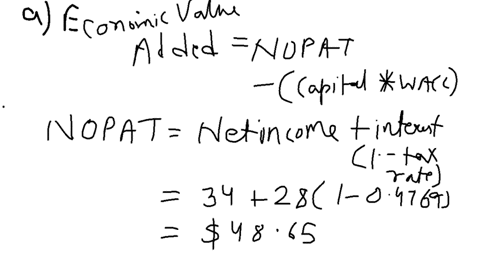 a) Economic Value
Added = NOPAT
- (Capital * WACC)
NOPAT = Net income + interest
(1 - tax
rate)
= 34 + 28(1 - 0.4769)
= $48.65